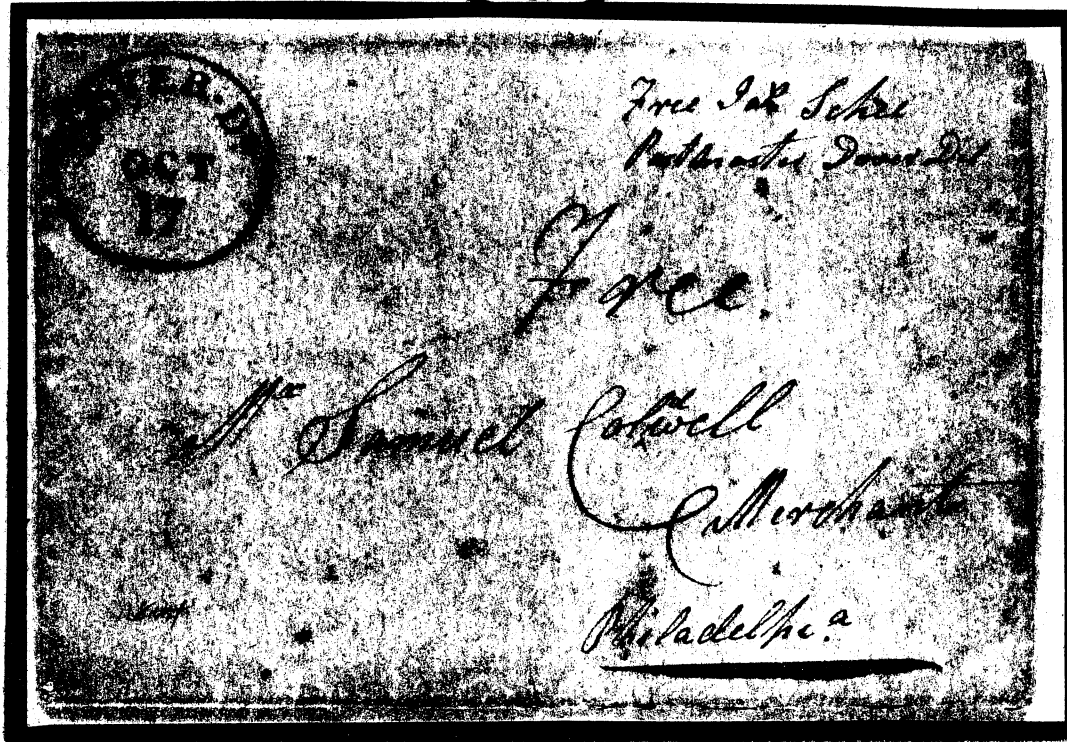 DOVER.D
OCT
17
Free Jah Schee
Postmaster Dover Del
Free.
Mr Samuel Colwell
Merchant
Philadelphi.a